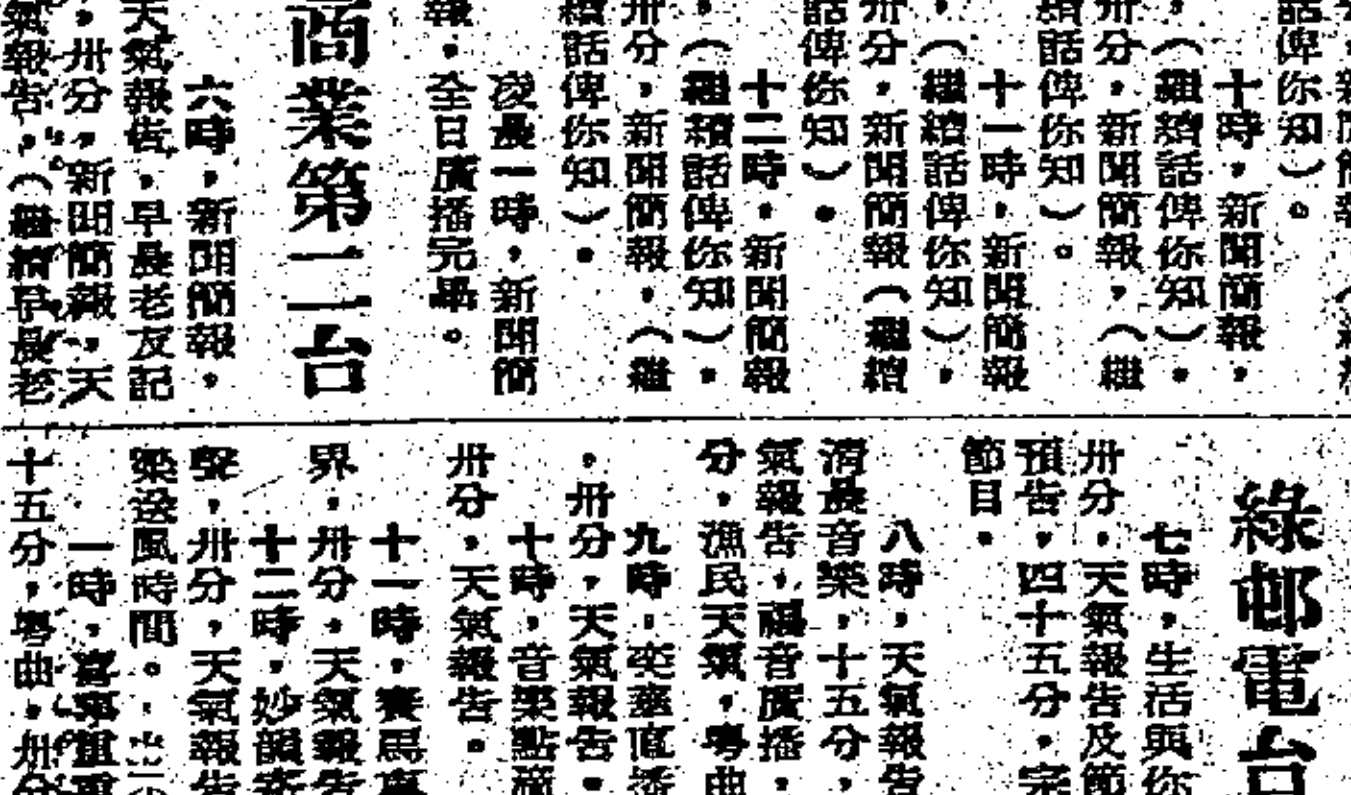 話俾你知）。
十時，新聞簡報，
（繼續話俾你知），
卅分，新聞簡報，（繼
續話俾你知）。
十一時，新聞簡報
，（繼續話俾你知），
卅分，新聞簡報（繼續
話俾你知）。
十二時，新聞簡報
，（繼續話俾你知），
卅分，新聞簡報，（繼
續話俾你知）。
凌晨一時，新聞簡
報，全日廣播完畢。
商業第二台
六時，新聞簡報，
天氣報告，早晨老友記
，卅分，新聞簡報，天
氣報告，（繼續早晨老
綠邨電台
七時，生活與你
卅分，天氣報告及節
預告，四十五分，宗
節目。
八時，天氣報告
清晨音樂，十五分，
氣報告，福音廣播，
分，漁民天氣，粵曲
九時，
，卅分，天氣報告。
十時，音樂點滴
卅分，天氣報告。
十一時，賽馬
界，卅分，天氣報告
十二時，妙韻
聲，卅分，天氣報告
樂送風時間。
一時，
十五分，粵曲，卅分